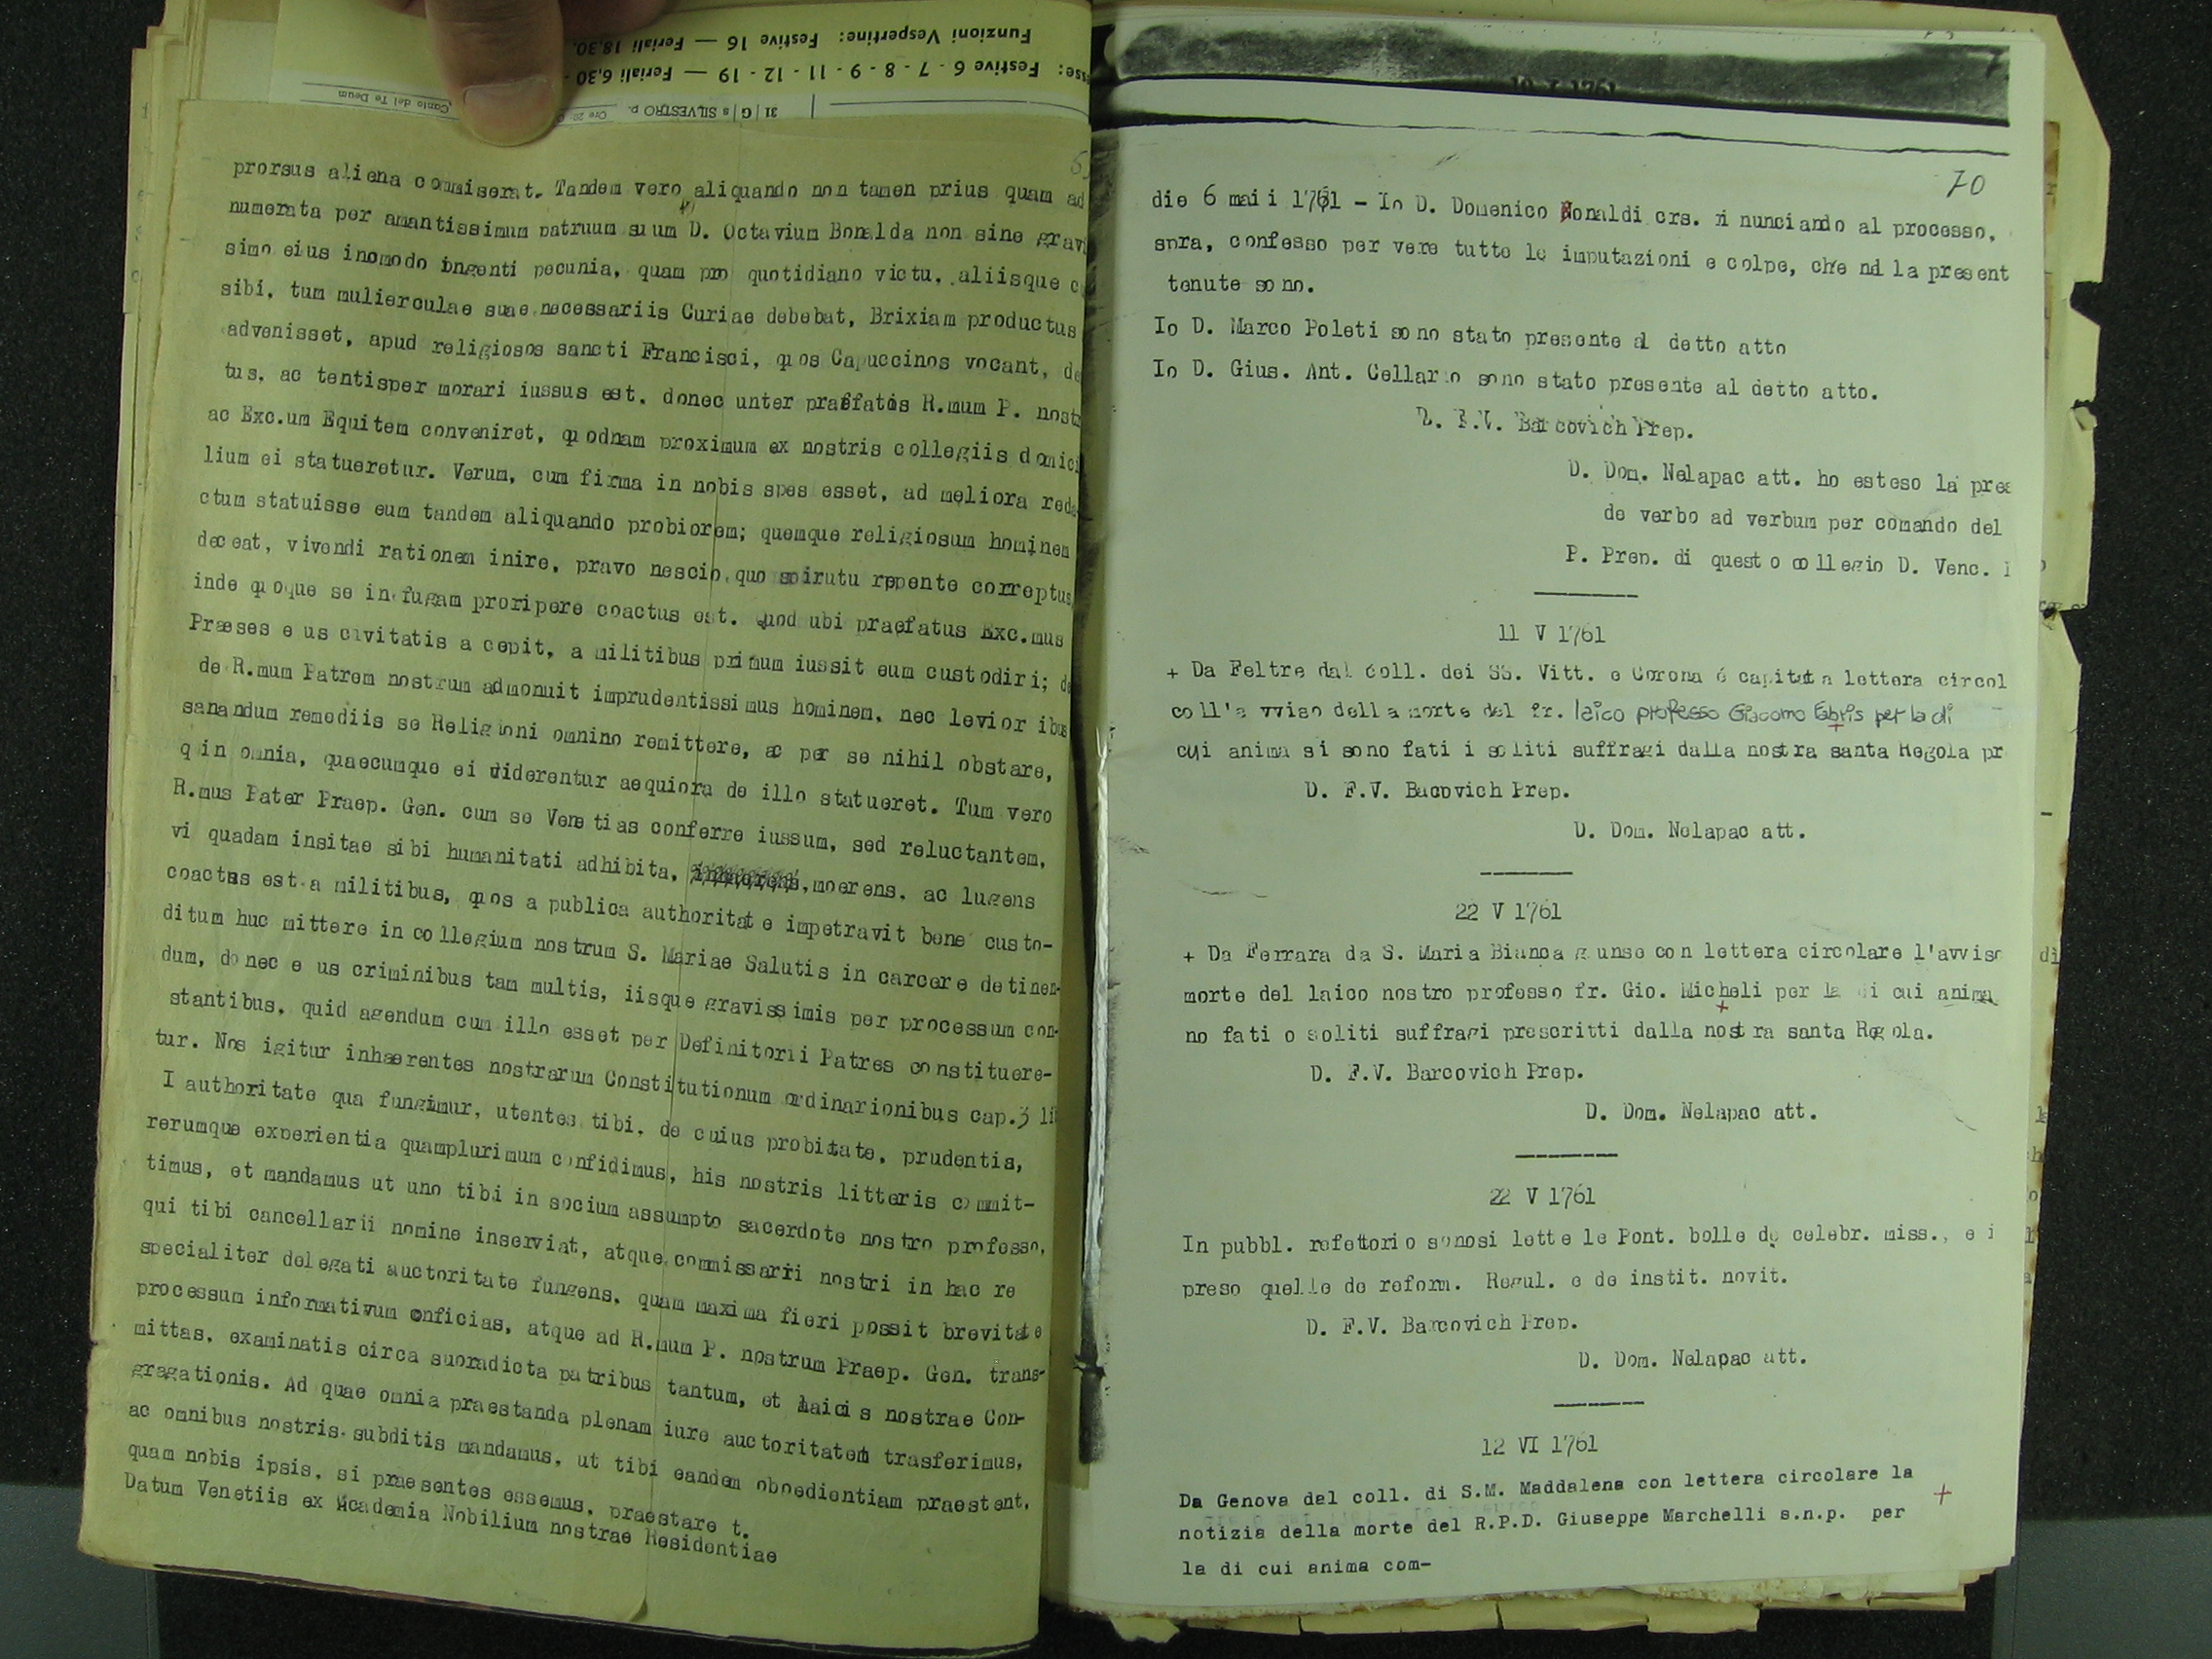 Funzioni Vespertine: Festive 16 — Feriali 18,30.
sse: Festive 6 - 7 - 8 - 9 - 11 - 12 - 19 — Feriali 6,30 -
31 | G | s SILVESTRO p. Ore 20 Canto del Te Deum
prorsus aliena commiserat. Tandem vero aliquando non tamen prius quam ad
numerata per amantissimum patruum suum D. Octavium Bonalda non sine grav
simo eius inomodo ingenti pecunia, quam pro quotidiano victu, aliisque c
sibi, tum mulierculae suae necessariis Curiae debebat, Brixiam productus
advenisset, apud religiosos sancti Francisci, quos Capuccinos vocant, de
tus, ac tentisper morari iussus est, donec unter praefatos R.mum P. nost
ac Exc.um Equitem conveniret, quodnam proximum ex nostris collegiis domici
lium ei statueretur. Verum, cum firma in nobis spes esset, ad meliora reda
ctum statuisse eum tandem aliquando probiorem; quemque religiosum hominem
deceat, vivendi rationem inire, pravo nescio quo spirutu repente correptus
inde quoque se in fugam proripere coactus est. Quod ubi praefatus Exc.mus
Præses e us civitatis a cepit, a militibus primum iussit eum custodiri; de
de R.mum Patrem nostrum admonuit imprudentissimus hominem, nec levior ibus
sanandum remediis se Religioni omnino remittere, ac per se nihil obstare,
q in omnia, quaecumque ei viderentur aequiora de illo statueret. Tum vero
R.mus Pater Praep. Gen. cum se Venetias conferre iussum, sed reluctantem,
vi quadam insitae sibi humanitati adhibita, moerens, ac lugens
coactus est a militibus, quos a publica authoritate impetravit bene custo-
ditum huc mittere in collegium nostrum S. Mariae Salutis in carcere detinen-
dum, donec e us criminibus tam multis, iisque gravissimis per processum con-
stantibus, quid agendum cum illo esset per Definitorii Patres constituere-
tur. Nos igitur inhaerentes nostrarum Constitutionum ordinarionibus cap.3 li
I authoritate qua fungimur, utentes tibi, de cuius probitate, prudentia,
rerumque experientia quamplurimum confidimus, his nostris litteris commit-
timus, et mandamus ut uno tibi in socium assumpto sacerdote nostro professo,
qui tibi cancellarii nomine inserviat, atque commissarii nostri in hac re
specialiter delegati auctoritate fungens, quam maxima fieri possit brevitate
processum informativum onficias, atque ad R.mum P. nostrum Praep. Gen. trans-
mittas, examinatis circa supradicta patribus tantum, et laicis nostrae Con-
gragationis. Ad quae omnia praestanda plenam iure auctoritatem trasferimus,
ac omnibus nostris subditis mandamus, ut tibi eandem oboedientiam praestent,
quam nobis ipsis, si praesentes essemus, praestare t.
Datum Venetiis ex Academia Nobilium nostrae Residentiae
70
die 6 maii 1761 - Io D. Domenico Bonaldi crs. rinunciando al processo,
spra, confesso per vere tutte le imputazioni e colpe, che nel la present
tenute sono.
Io D. Marco Poleti sono stato presente al detto atto
Io D. Gius. Ant. Cellario sono stato presente al detto atto.
D. F.V. Barcovich Prep.
D. Dom. Nelapac att. ho esteso la pres
de verbo ad verbum per comando del
P. Prep. di questo collegio D. Venc.
11 V 1761
+ Da Feltre dal coll. dei SS. Vitt. e Corona é capitata lettera circol
coll'avviso della morte del fr. laico professo Giacomo Fabris per la di
cui anima si sono fati i soliti suffragi dalla nostra santa Regola pr
D. F.V. Bacovich Prep.
D. Dom. Nelapac att.
22 V 1761
+ Da Ferrara da S. Maria Bianca giunse con lettera circolare l'avviso di
morte del laico nostro professo fr. Gio. Micheli per la di cui anima
no fati o soliti suffragi prescritti dalla nostra santa Regola.
D. F.V. Barcovich Prep.
D. Dom. Nelapac att.
22 V 1761
In pubbl. refettorio sonosi lette le Pont. bolle de celebr. miss., e i
preso quelle de reform. Regul. e de instit. novit.
D. F.V. Barcovich Prep.
D. Dom. Nelapac att.
12 VI 1761
Da Genova dal coll. di S.M. Maddalena con lettera circolare la +
notizia della morte del R.P.D. Giuseppe Marchelli s.n.p. per
la di cui anima com-